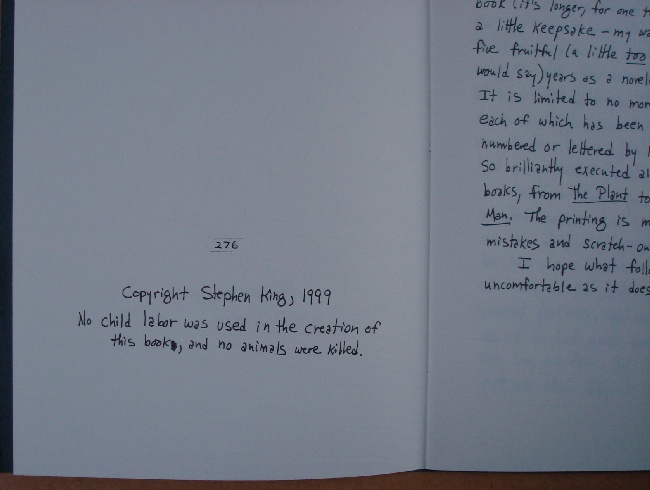 276
Copyright Stephen King, 1999
No child labor was used in the creation of
this book, and no animals were killed.
book (it's longer, for one
a little keepsake – my
five fruitful (a little too
would say) years as a
It is limited to no
each of which has been
numbered or lettered by
So brilliantly executed
books, from The Plant to
Man. The printing is
mistakes and
I hope what
uncomfortable as it does